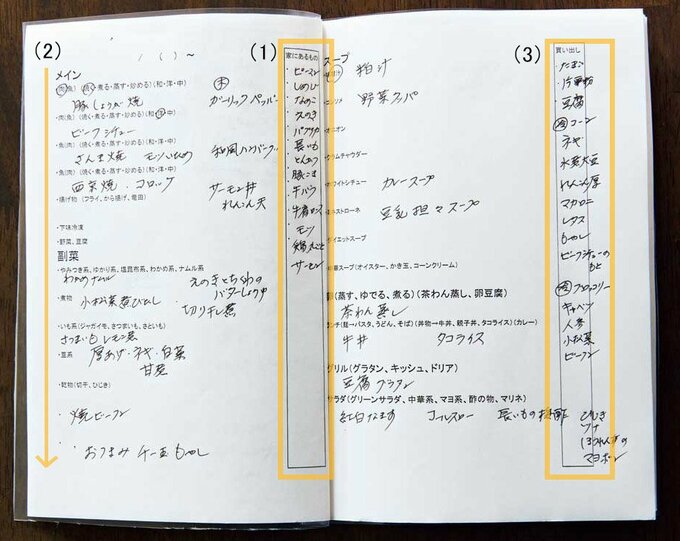 (2)
/ ( ) ~
メイン
・肉(魚) (焼く・煮る・蒸す・炒める) (和・洋・中)
豚しょうが焼 ガーリックペッパー
・肉(魚) (焼く・煮る・蒸す・炒める) (和・洋・中)
ビーフシチュー
・魚(肉) (焼く・煮る・蒸す・炒める) (和・洋・中)
さんま焼 モツいため 和風ハンバーグ
・魚(肉) (焼く・煮る・蒸す・炒める) (和・洋・中)
西京焼・コロッケ サーモン丼
・揚げ物 (フライ、から揚げ、竜田) れんこん天
・下味冷凍
・野菜、豆腐
副菜
・やみつき系、ゆかり系、塩昆布系、わかめ系、ナムル系
わかめナムル えのきとちくわの
バターしょうゆ
・煮物 小松菜煮びたし
切り干し煮
・いも系 (ジャガイモ、さつまいも、さといも)
さつまいもレモン煮
・豆系 厚あげ・ネギ・白菜
甘煮
・乾物(切干、ひじき)
・焼ビーフン
・おつまみ チーズ もやし
(1)
家にあるもの
・ピーマン
・しめじ
・なめこ
・えのき
・長いも
・とんかつ
・豚こま
・牛バラ
・モツ
・サーモン
(3)
スープ
粕汁
野菜スッパ
オニオン
クラムチャウダー
ホワイトシチュー カレースープ
ミネストローネ 豆乳担々スープ
ダイエットスープ
中華スープ(オイスター、かき玉、コーンクリーム)
卵(蒸す、ゆでる、煮る) (茶わん蒸し、卵豆腐)
茶わん蒸し
ランチ(麺→パスタ、うどん、そば) (丼物→牛丼、親子丼、タコライス) (カレー)
牛丼 タコライス
グリル(グラタン、キッシュ、ドリア)
豆腐グラタン
サラダ(グリーンサラダ、中華系、マヨ系、酢の物、マリネ)
紅白なます コールスロー 長いも梅酢 ひじき
ツナ
ほうれん草の
マヨポン
買い出し
・たまご
・片栗粉
・豆腐
・冷 コーン
・ネギ
・水煮大豆
・れんこん厚
・マカロニ
・レタス
・もやし
・ビーフシチューの
もと
・冷 ブロッコリー
・キャベツ
・人参
・小松菜
・ビーフン